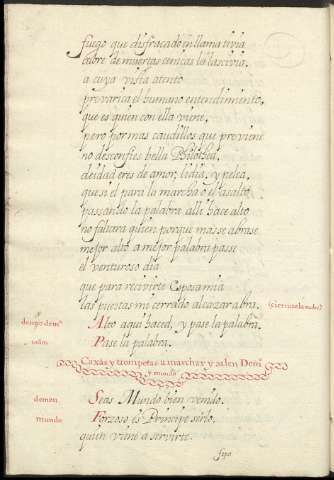 fuego que disfraçado en llama tivia
cubre de muertas cenicas la lascivia,
a cuya vista atento
prevarica el humano entendimiento,
que es quien con ella viene,
pero por mas caudillos que previene
no desconfies bella Philothea,
deidad eres de amor, lidia, y pelea,
que si el para la marcha o el asalto
passando la palabra alli hace alto
no faltara quien porque mas se abrase
mejor alto a mejor palabra passe
el venturoso dia
que para recivirte Esposa mia
las puertas mi cerrado alcazar abra. (cierrase la nube)
Alto aqui haced, y pase la palabra.
Pase la palabra.
Caxas y trompetas a marchar y salen Demº
y mundo
demon. Seas Mundo bien venido.
mundo Forzoso es Principe serlo,
quien viene a servirte.